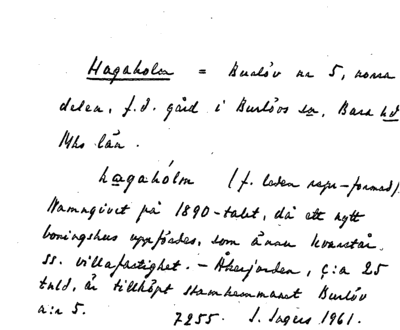 Hagaholm = Burlöv nr 5, norra
delen, f.d. gård i Burlövs sn, Bara hd
Mhs län.
hagahólm (f. leden repr-formad).
Namngivet på 1890-talet, då ett nytt
boningshus uppfördes, som ännu kvarstår
ss. villafastighet. – Åkerjorden, c:a 25
tnld, är tillköpt stamhemmanet Burlöv
n:r 5. 7255. S. Ingers 1961.